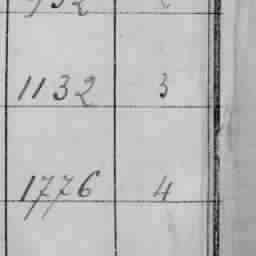 1132 3
1776 4